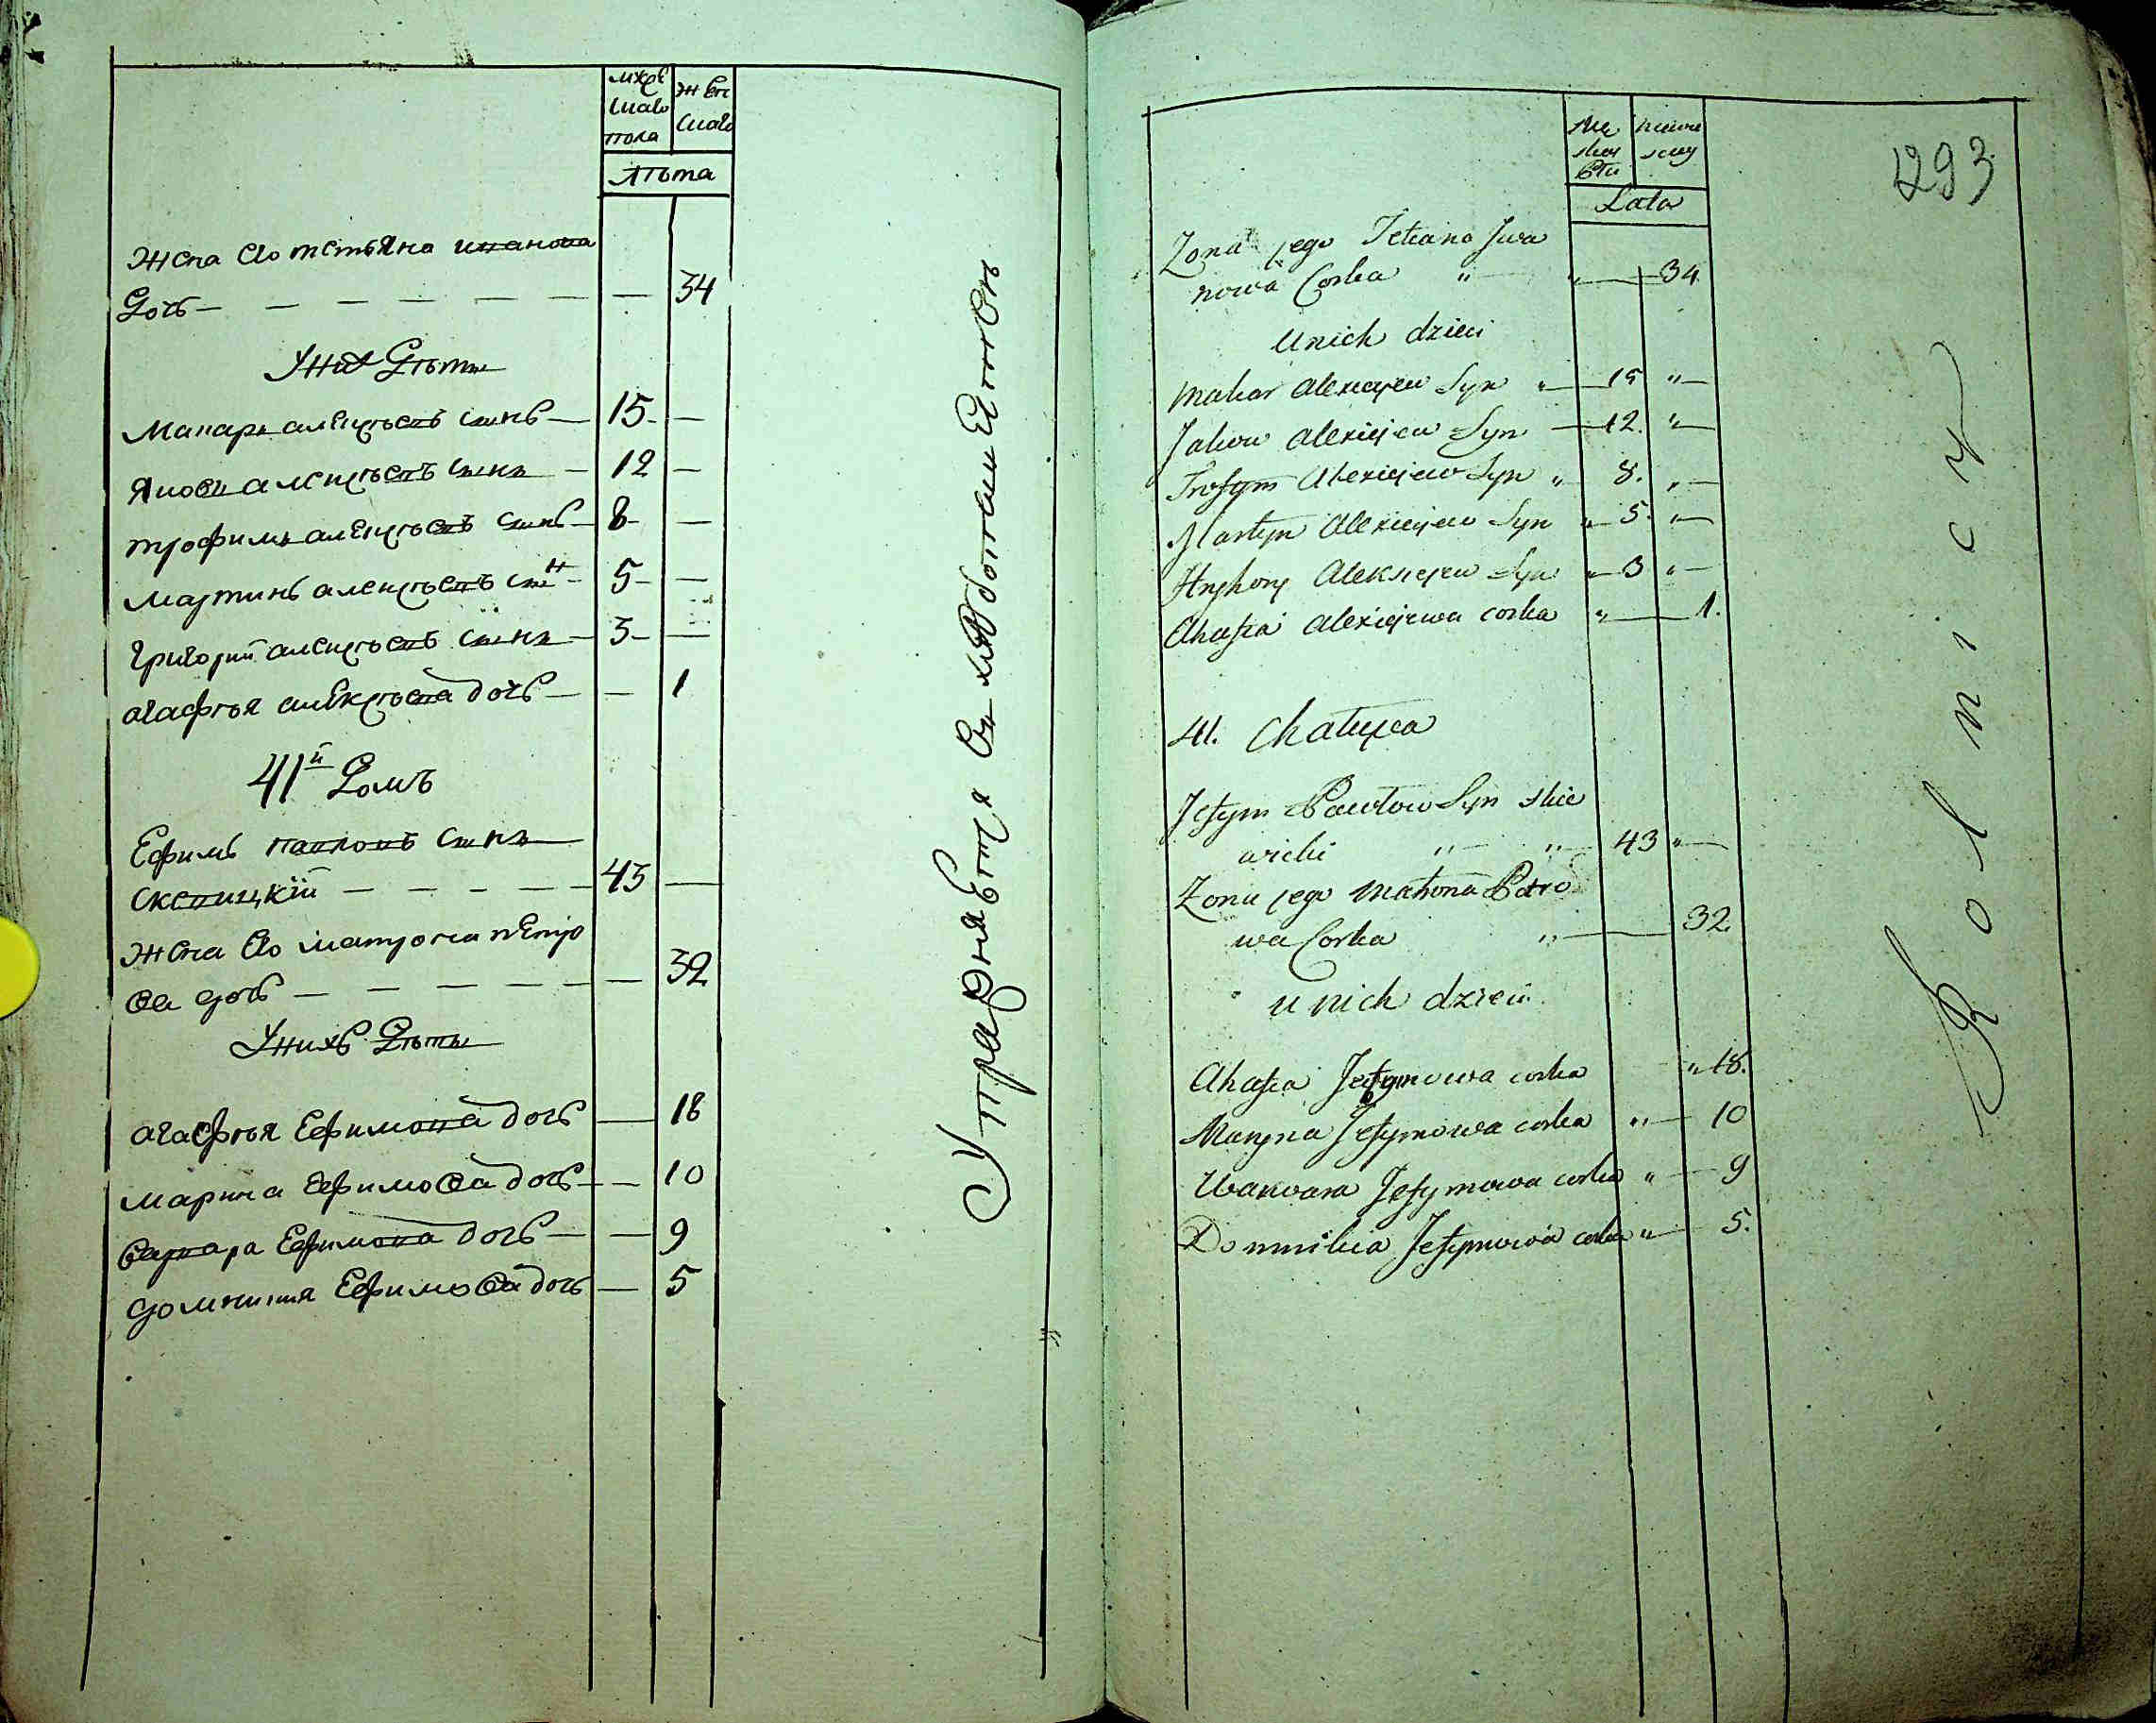 мужес
скаго
пола
женс
скаго
лѣта
жена его тетьяна иванова
дочь — — — — — — — 34
У них дѣти
Макаръ алексѣевъ сынъ — 15 —
Яковъ алексѣевъ сынъ — 12 —
трофимъ алексѣевъ сынъ — 8 —
мартинъ алексѣевъ сын — 5 —
григорий алексѣевъ сынъ — 3 —
агафья алексѣева дочь — — 1
41й Домъ
Ефимъ павловъ сынъ
скевицкій — — — — — 43 —
жена его матрона петро
ва дочь — — — — — — 32
У нихъ дѣти
агафья Ефимова дочь — 18
марина Ефимова дочь — — 10
варвара Ефимова дочь — — 9
домникия Ефимова дочь — 5
Упражняется въ хлѣбопашествѣ
Mę
skey
Płci
żeń
skiey
Lata
1293
Zona jego Tetiana Iwa
nowa Corka " — " — 34
U nich dzieci
Makar Alexiejew Syn " — 15 " —
Jakow Alexiejew Syn — 12. " —
Trofym Alexiejew Syn " 8. " —
Martyn Alexiejew Syn " — 5. " —
Hryhory Aleksiejew Syn " — 3 " —
Ahafia Alexiejewa corka " — 1.
41. Chałupa
Jefym Pawłow Syn Skie
wicki " — " — 43 " —
Zona jego Matrona Petro
wa Corka " — 32.
u nich dzieci
Ahafia Jefymowa corka " 18.
Maryna Jefymowa corka " — 10
Warwara Jefymowa corka " — 9
Domnikia Jefymowa corka " — 5.
Rolnicy